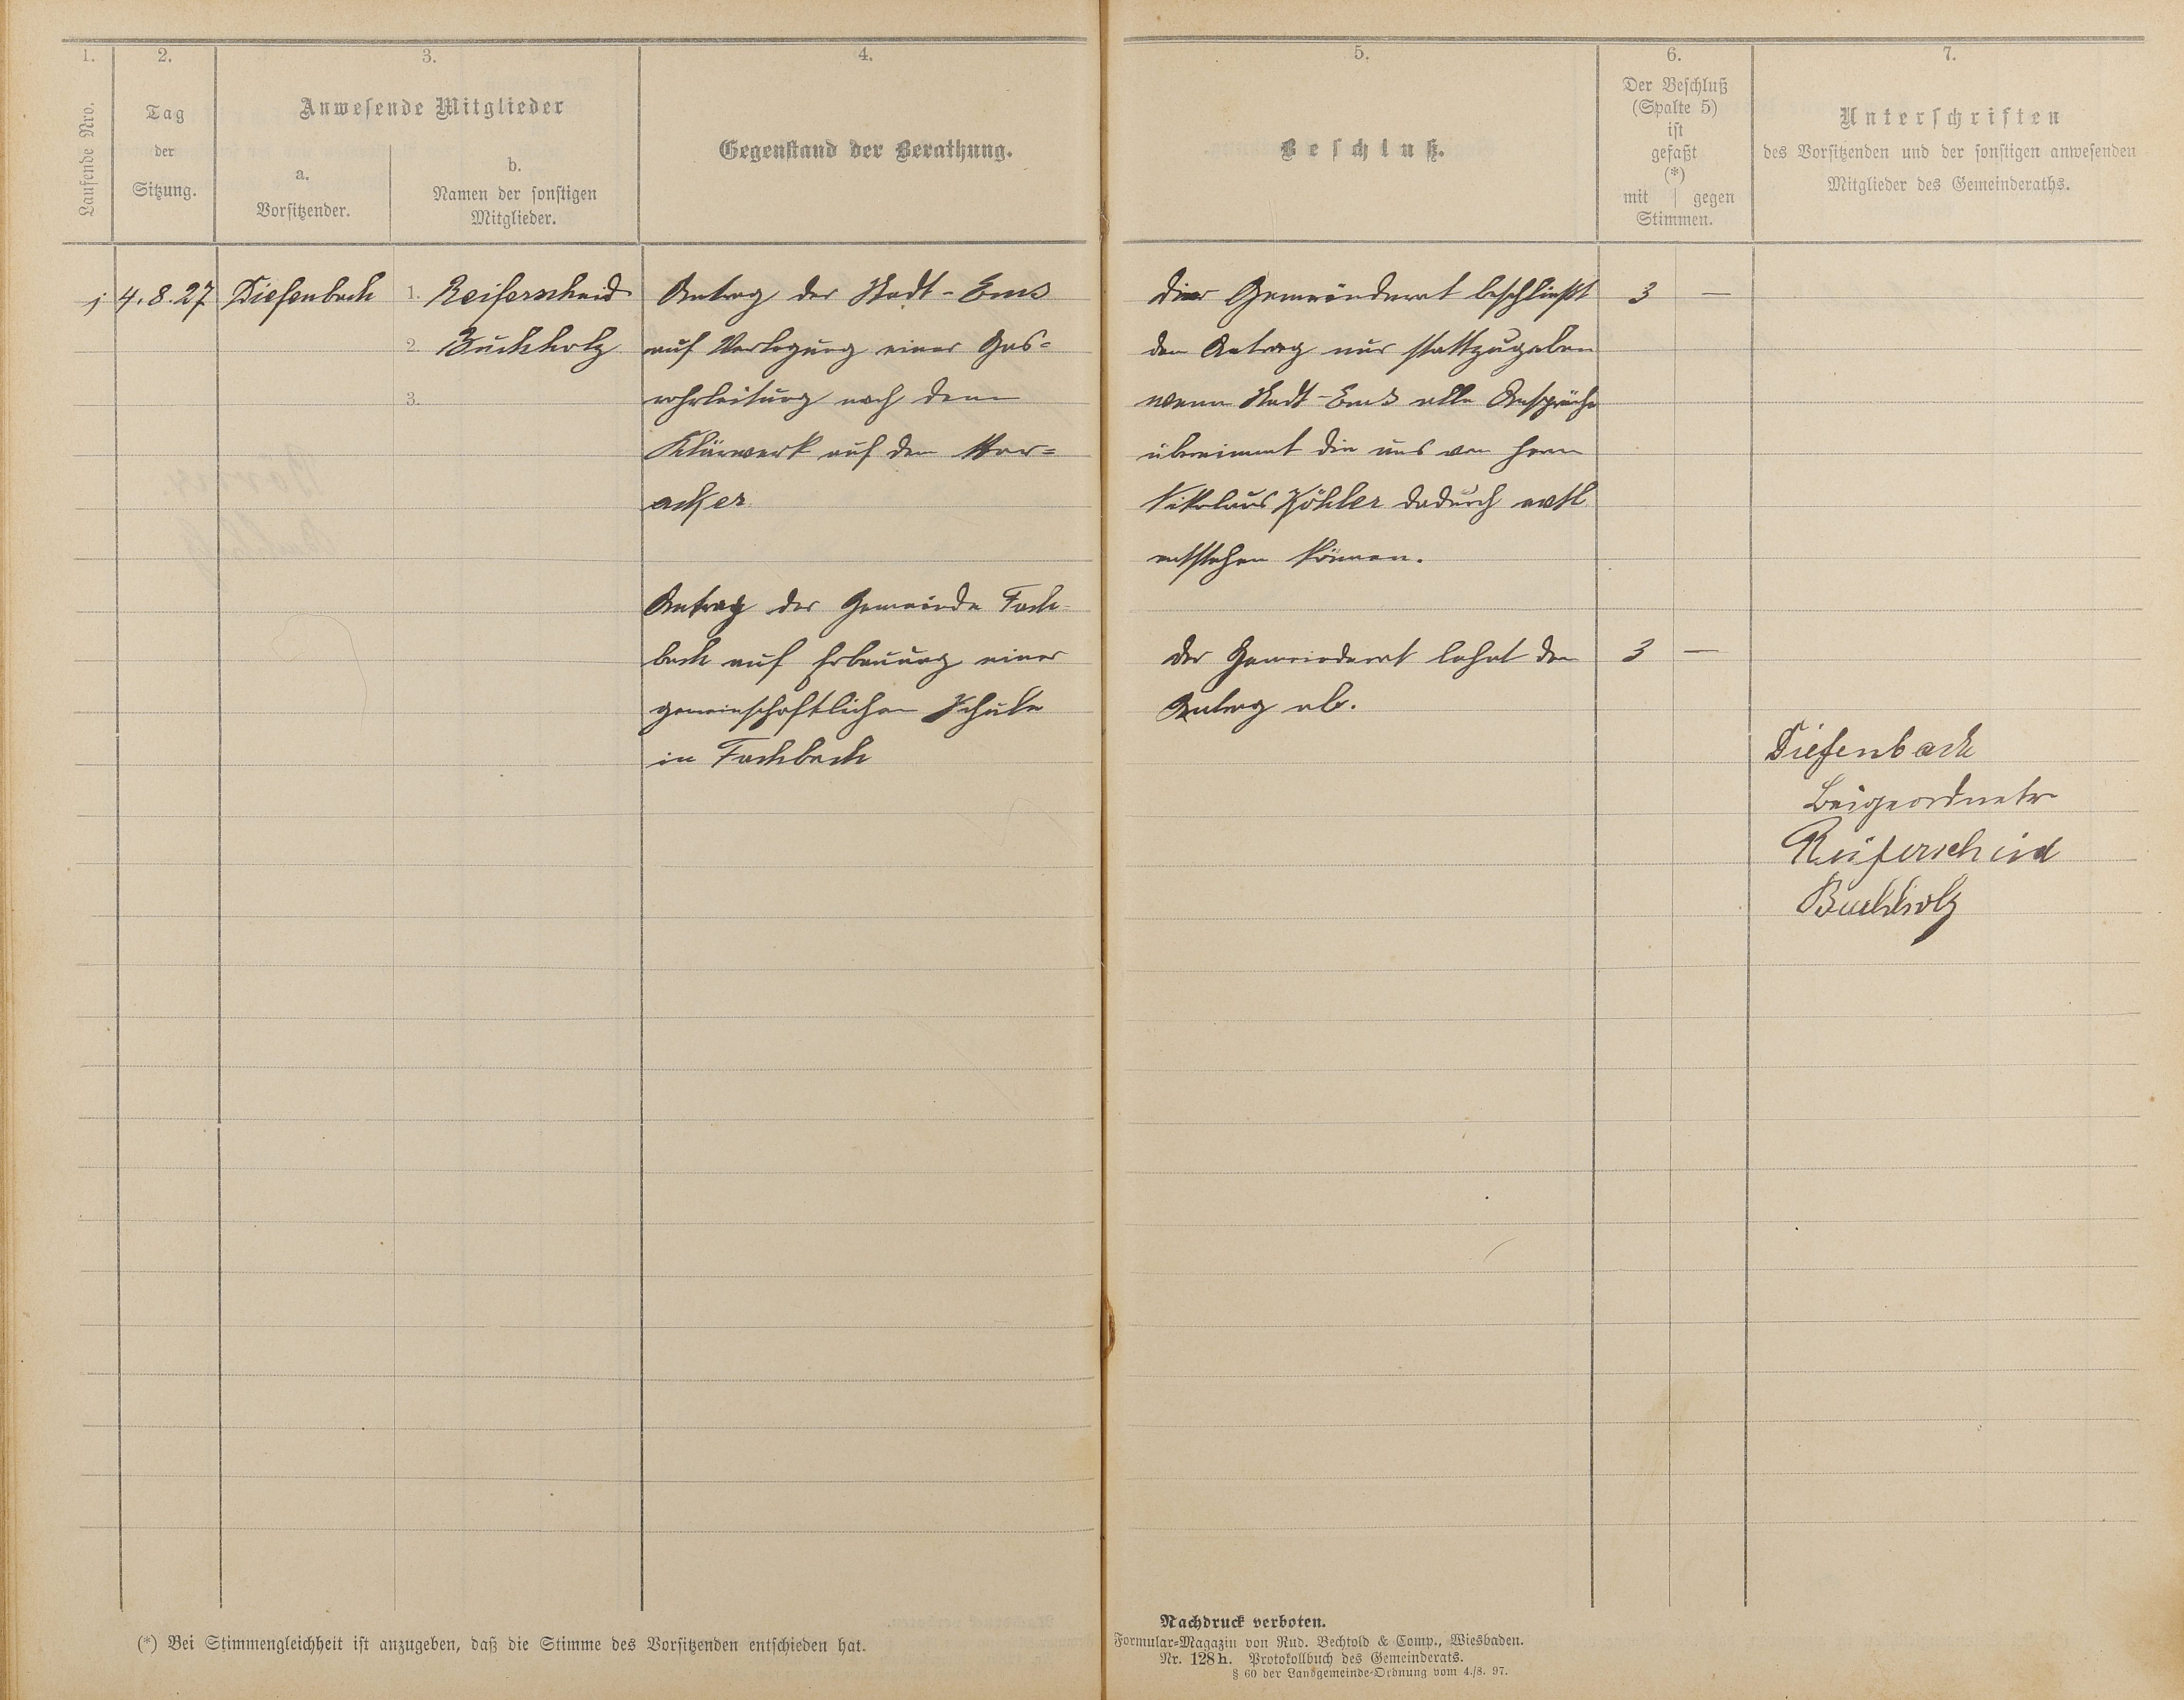 1.
2.
3.
4.
Laufende Nro.
Tag
der
Sitzung.
Anwesende Mitglieder
a.
Vorsitzender.
b.
Namen der sonstigen
Mitglieder.
Gegenstand der Berathung.
5.
6.
7.
Beschluß.
Der Beschluß
(Spalte 5)
ist
gefaßt
(*)
mit | gegen
Stimmen.
Unterschriften
des Vorsitzenden und der sonstigen anwesenden
Mitglieder des Gemeinderaths.
4.8.27 Diefenbach 1. Reiferscheid
2. Buchholz
3.
Antrag der Stadt-Ems
auf Verlegung einer Gas=
rohrleitung nach dem
Klärwerk auf den
acker
Antrag der Gemeinde Fach-
bach auf Erbauung einer
gemeinschaftlichen Schule
in Fachbach
Der Gemeinderat beschließt 3 —
den Antrag nur stattzugeben
wenn Stadt-Ems alle Ansprüche
übernimmt die uns von Herrn
Nikolaus Köhler dadurch evtl
entstehen können.
Der Gemeinderat lehnt den 3 —
Antrag ab.
Diefenbach
Beigeordneter
Reiferscheid
Buchholz
(*) Bei Stimmengleichheit ist anzugeben, daß die Stimme des Vorsitzenden entschieden hat.
Nachdruck verboten.
Formular=Magazin von Rud. Bechtold & Comp., Wiesbaden.
Nr. 128h. Protokollbuch des Gemeinderats.
§ 60 der Landgemeinde=Ordnung vom 4./8. 97.